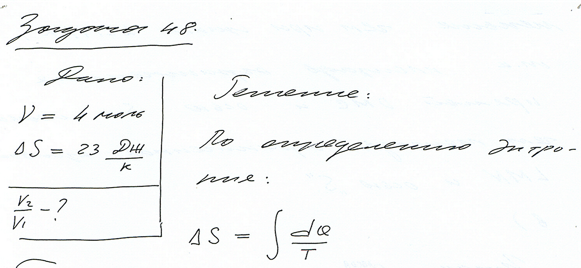 Задача 48.
Дано:
ν = 4 моль
ΔS = 23 Дж/К
V₂/V₁ - ?
Решение:
По определению энтро-
пия:
ΔS = ∫ dQ/T